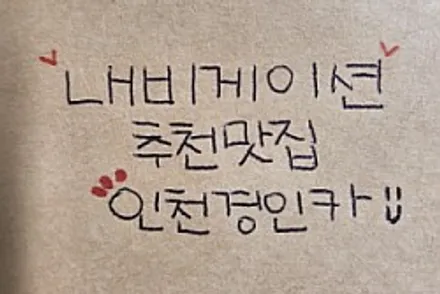 내비게이션
추천맛집
인천경인카